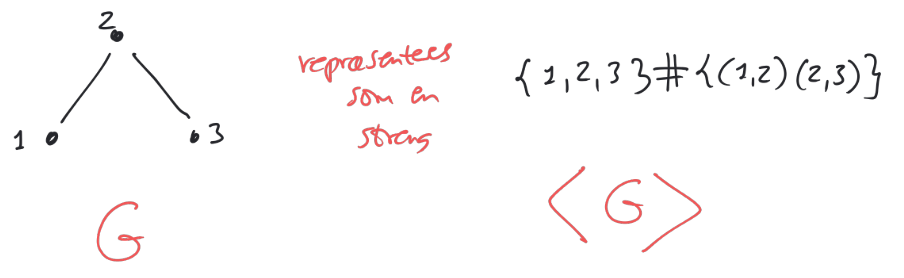 2
1
3
G
representeres
som en
streng
{1,2,3}#{(1,2)(2,3)}
<G>